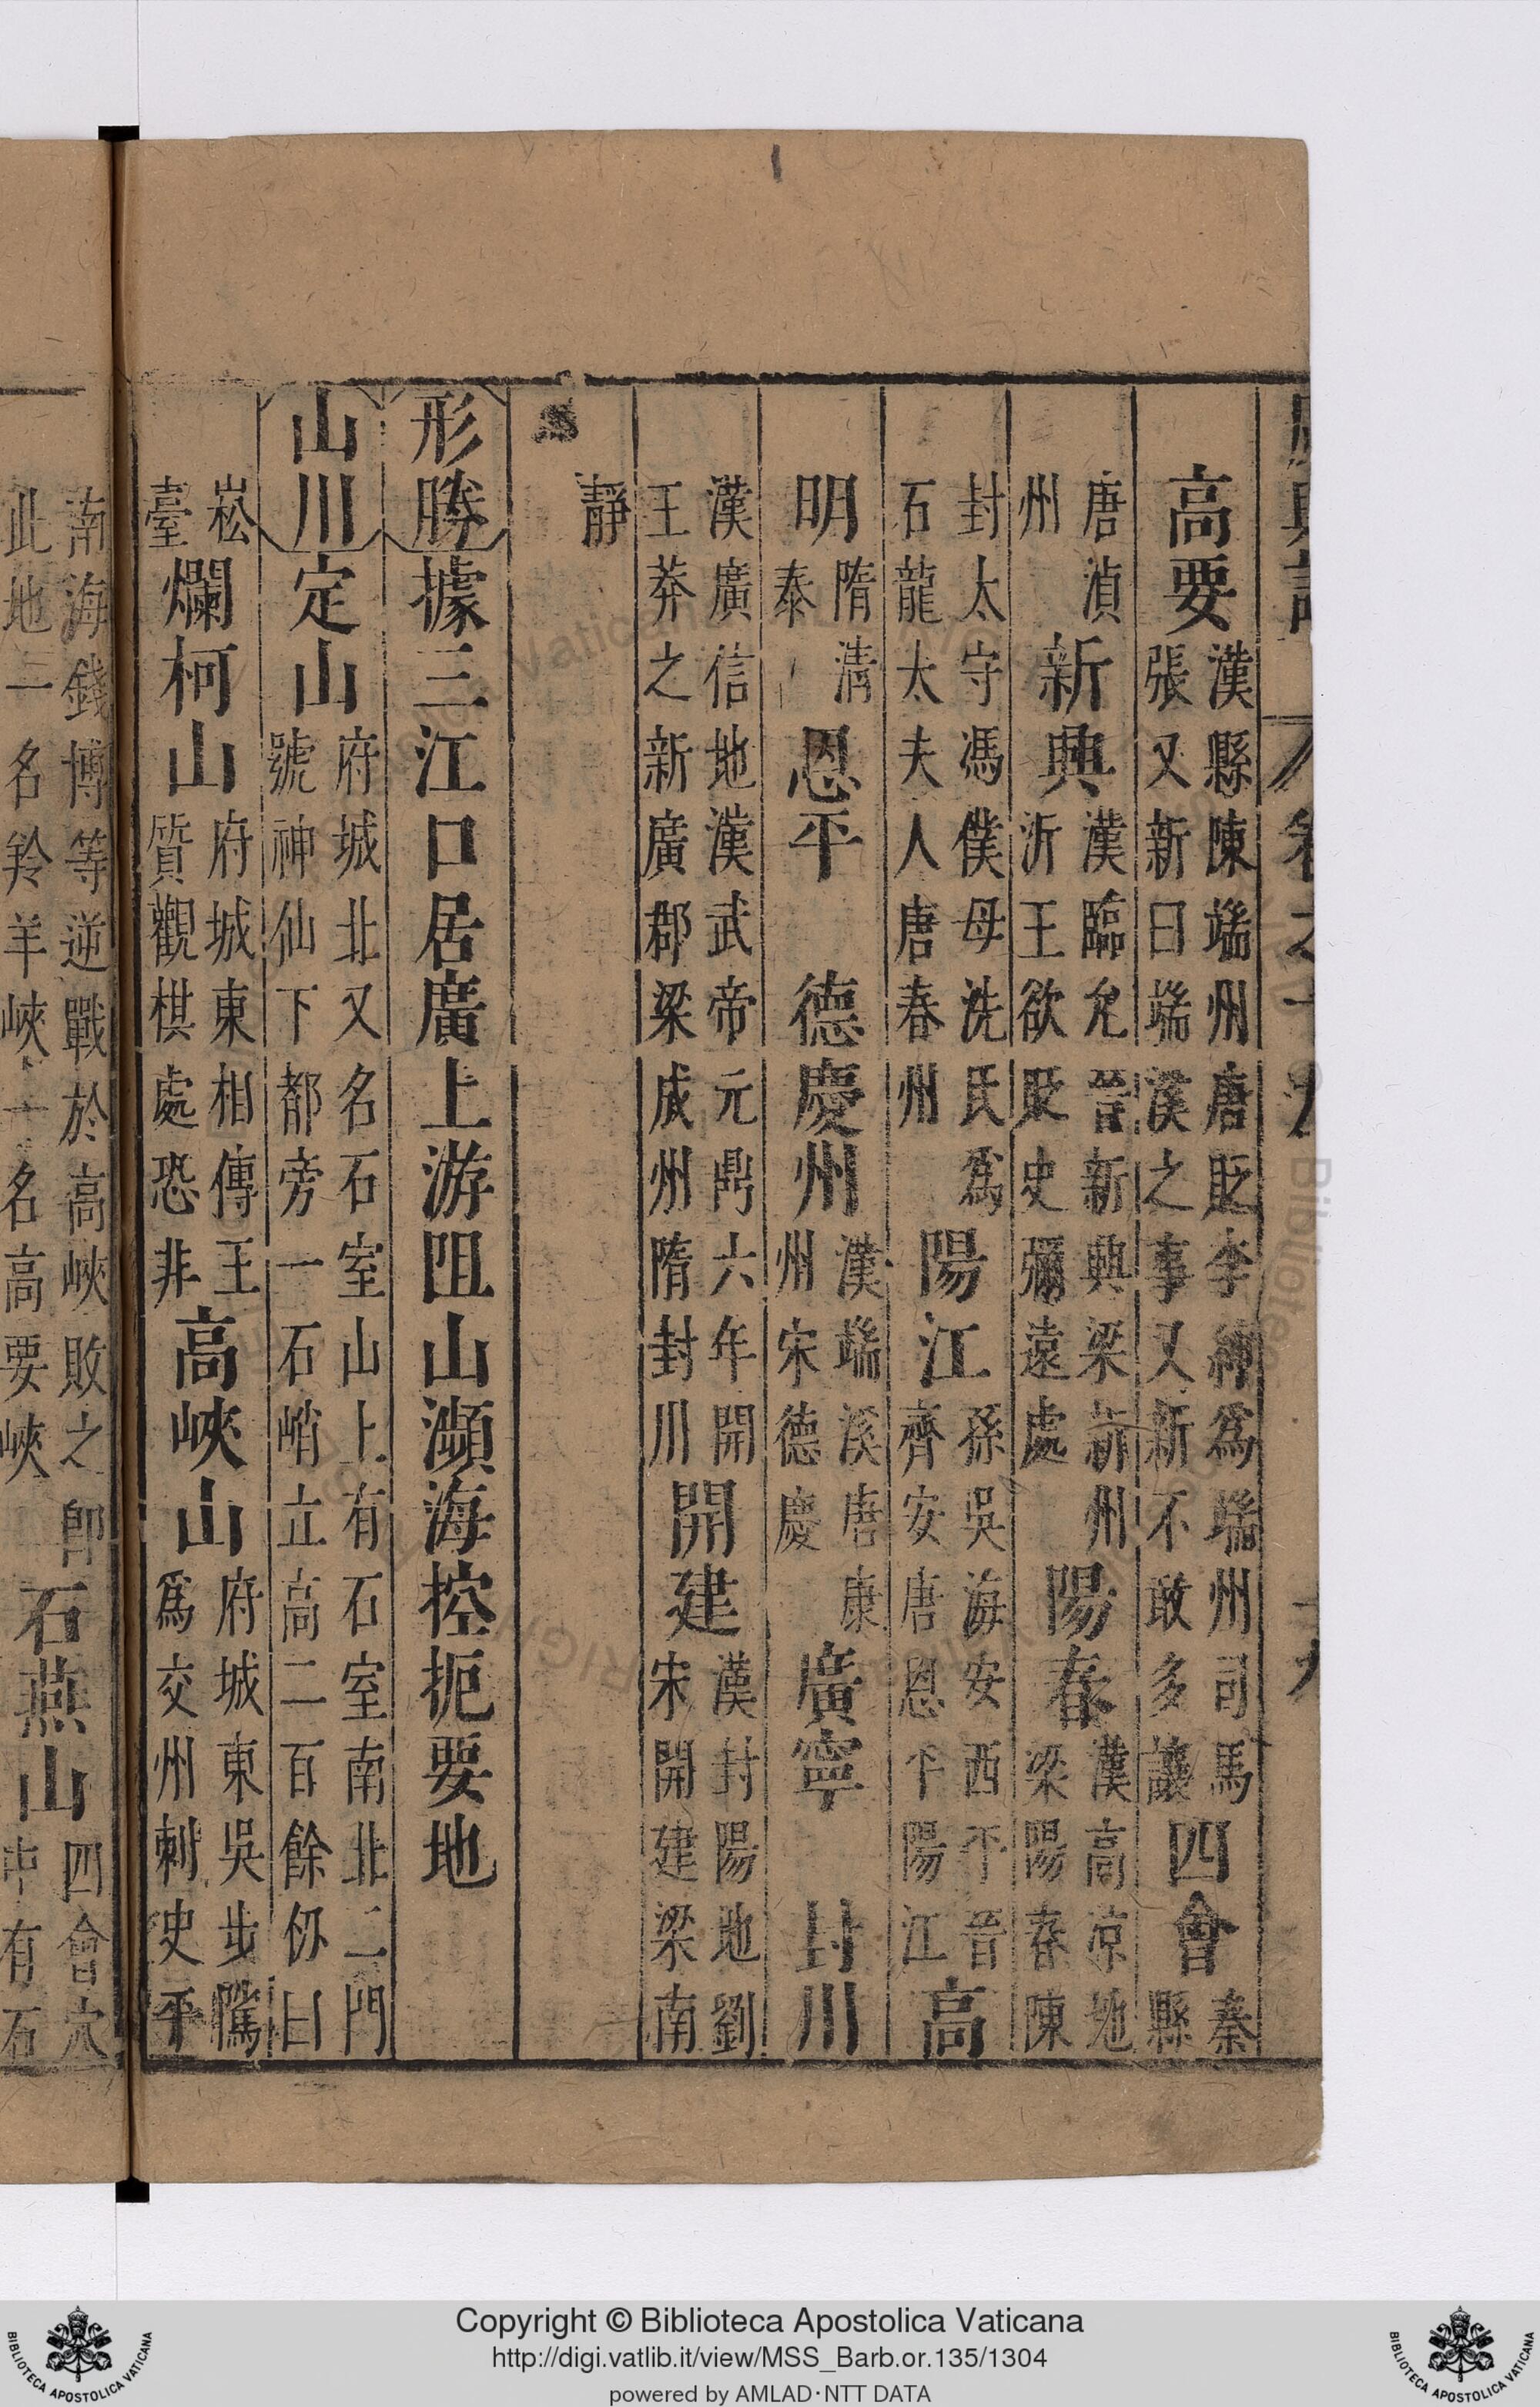 高要漢縣陳端州唐貶李紳爲端州司馬張又新曰端溪之事又新不敢多議四會秦縣
唐湞州新興漢臨允晉新興梁新州沂王欲貶史彌遠處陽春漢高涼地梁陽春陳
封太守馮僕母洗氏爲石龍太夫人唐春州陽江孫吳海安西平晉齊安唐恩平陽江高
明隋清泰恩平德慶州漢端溪唐康州宋德慶廣寧封川
漢廣信地漢武帝元鼎六年開王莽之新廣郡梁成州隋封川開建漢封陽地劉宋開建梁南
靜
形勝據三江口居廣上游阻山瀕海控扼要地
山川定山府城北又名石室山上有石室南北二門號神仙下都旁一石峭立高二百餘仞曰
崧臺爛柯山府城東相傳王質觀棋處恐非高峽山府城東吳步騭爲交州刺史平
南海錢博等逆戰於高峽敗之即此地一名羚羊峽一名高要峽石燕山四會穴中有石
Copyright © Biblioteca Apostolica Vaticana
http://digi.vatlib.it/view/MSS_Barb.or.135/1304
powered by AMLAD·NTT DATA
BIBLIOTECA APOSTOLICA VATICANA
BIBLIOTECA APOSTOLICA VATICANA